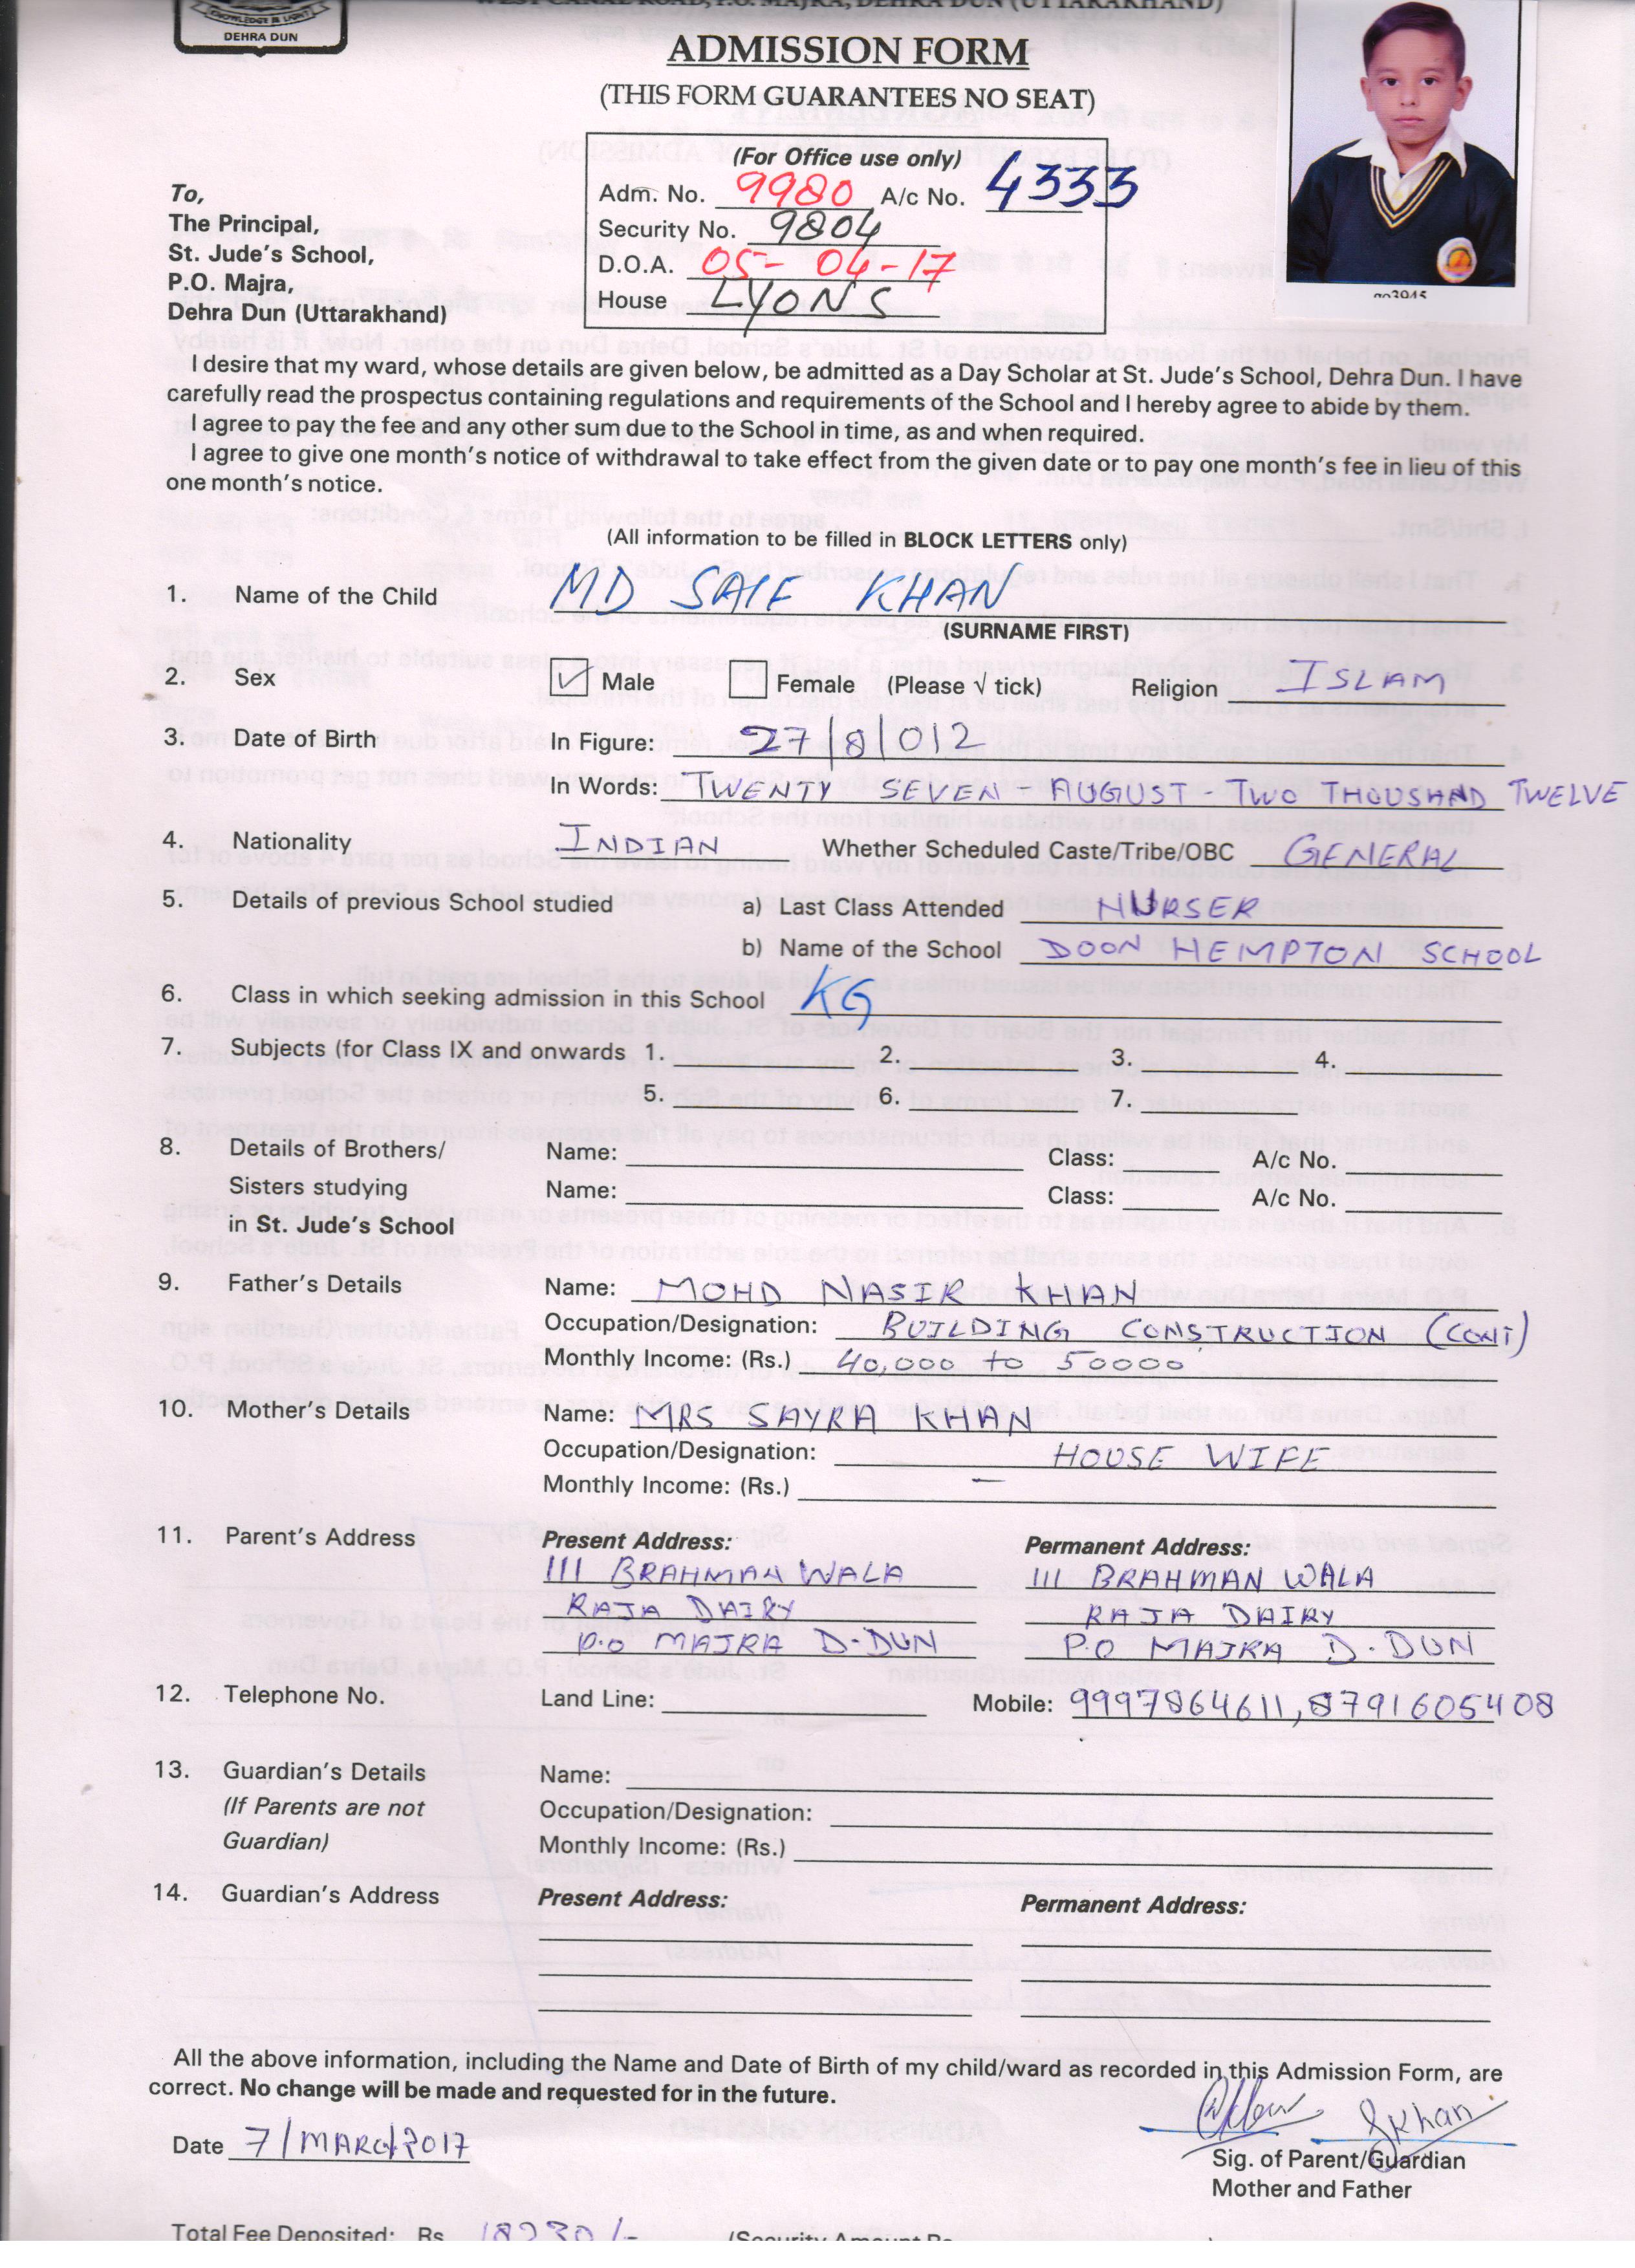 KNOWLEDGE IS LIGHT
DEHRA DUN
WEST CANAL ROAD, P.O. MAJRA, DEHRA DUN (UTTARAKHAND)
ADMISSION FORM
(THIS FORM GUARANTEES NO SEAT)
(For Office use only)
Adm. No. 9980 A/c No. 4333
Security No. 9804
D.O.A. 05- 04-17
House LYONS
To,
The Principal,
St. Jude's School,
P.O. Majra,
Dehra Dun (Uttarakhand)
I desire that my ward, whose details are given below, be admitted as a Day Scholar at St. Jude's School, Dehra Dun. I have
carefully read the prospectus containing regulations and requirements of the School and I hereby agree to abide by them.
I agree to pay the fee and any other sum due to the School in time, as and when required.
I agree to give one month's notice of withdrawal to take effect from the given date or to pay one month's fee in lieu of this
one month's notice.
(All information to be filled in BLOCK LETTERS only)
1. Name of the Child MD SAIF KHAN
(SURNAME FIRST)
2. Sex Male Female (Please √ tick) Religion ISLAM
3. Date of Birth In Figure: 27/8/012
In Words: TWENTY SEVEN - AUGUST - TWO THOUSHND TWELVE
4. Nationality INDIAN Whether Scheduled Caste/Tribe/OBC GENERAL
5. Details of previous School studied a) Last Class Attended NURSER
b) Name of the School DOON HEMPTON SCHOOL
6. Class in which seeking admission in this School KG
7. Subjects (for Class IX and onwards 1. 2. 3. 4.
5. 6. 7.
8. Details of Brothers/ Name: Class: A/c No.
Sisters studying Name: Class: A/c No.
in St. Jude's School
9. Father's Details Name: MOHD NASIR KHAN
Occupation/Designation: BUILDING CONSTRUCTION (CONT)
Monthly Income: (Rs.) 40,000 to 50000
10. Mother's Details Name: MRS SAYRA KHAN
Occupation/Designation: HOUSE WIFE
Monthly Income: (Rs.) —
11. Parent's Address Present Address: Permanent Address:
111 BRAHMAN WALA 111 BRAHMAN WALA
RAJA DAIRY RAJA DAIRY
P.O MAJRA D-DUN P.O MAJRA D.DUN
12. Telephone No. Land Line: Mobile: 9997864611, 8791605408
13. Guardian's Details Name:
(If Parents are not Occupation/Designation:
Guardian) Monthly Income: (Rs.)
14. Guardian's Address Present Address: Permanent Address:
All the above information, including the Name and Date of Birth of my child/ward as recorded in this Admission Form, are
correct. No change will be made and requested for in the future.
Date 7/MARCH2017 SKhan
Sig. of Parent/Guardian
Mother and Father
Total Fee Deposited: Rs. 18230/- (Security Amount Rs.